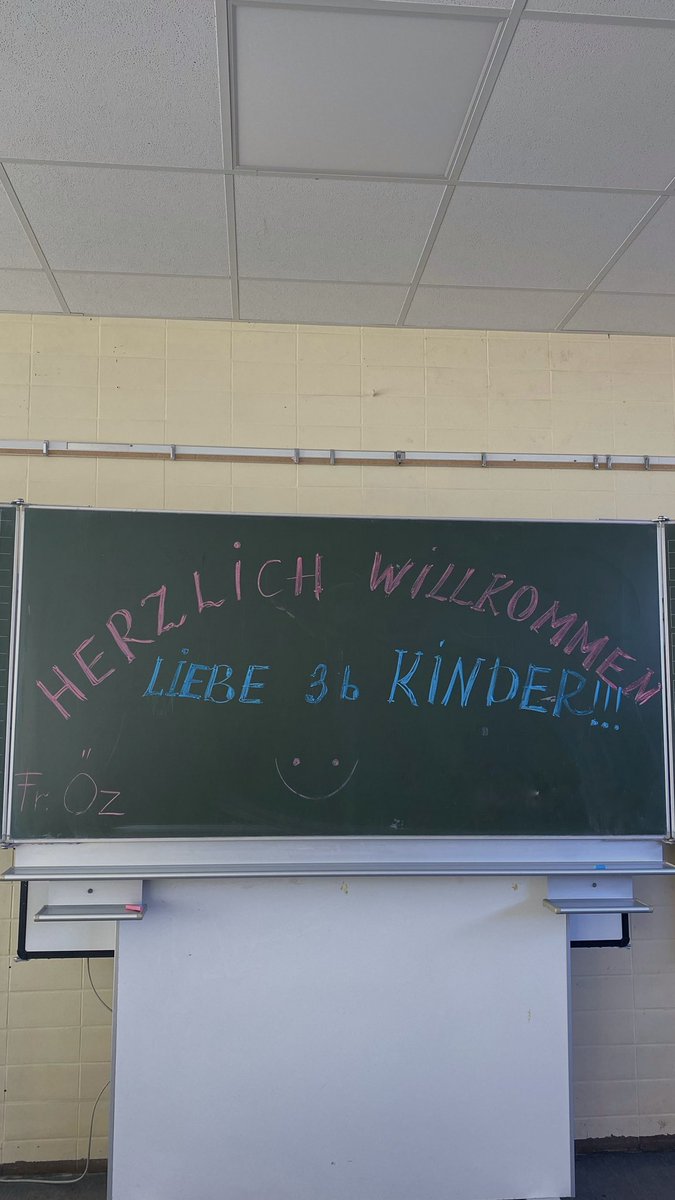 HERZLiCH WiLLKOMMEN
LiEBE 3b KiNDER!!!
Fr. Öz